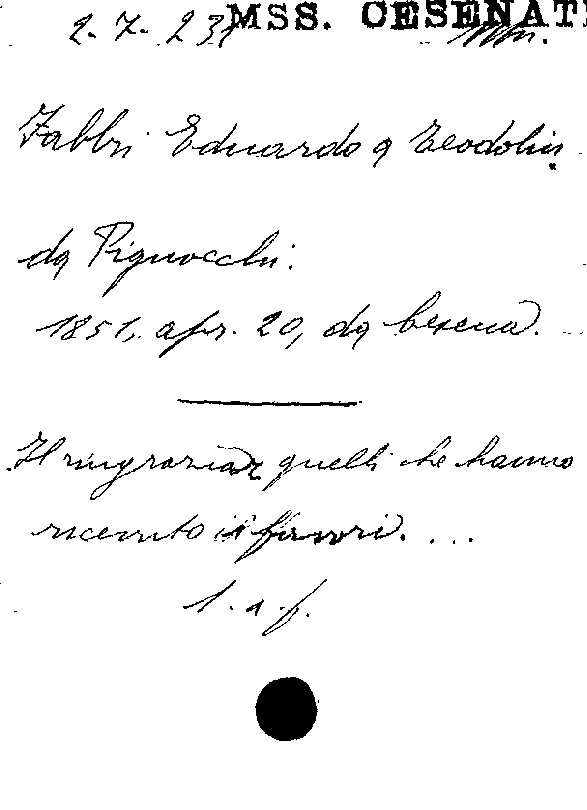 MSS. CESENATI
2. 7. 231
Fabbri Eduardo a Teodolin
da Pignocchi.
1851, apr. 20, da Cesena.
Il ringraziar quelli che hanno
ricevuto i favori. ...
l. a f.